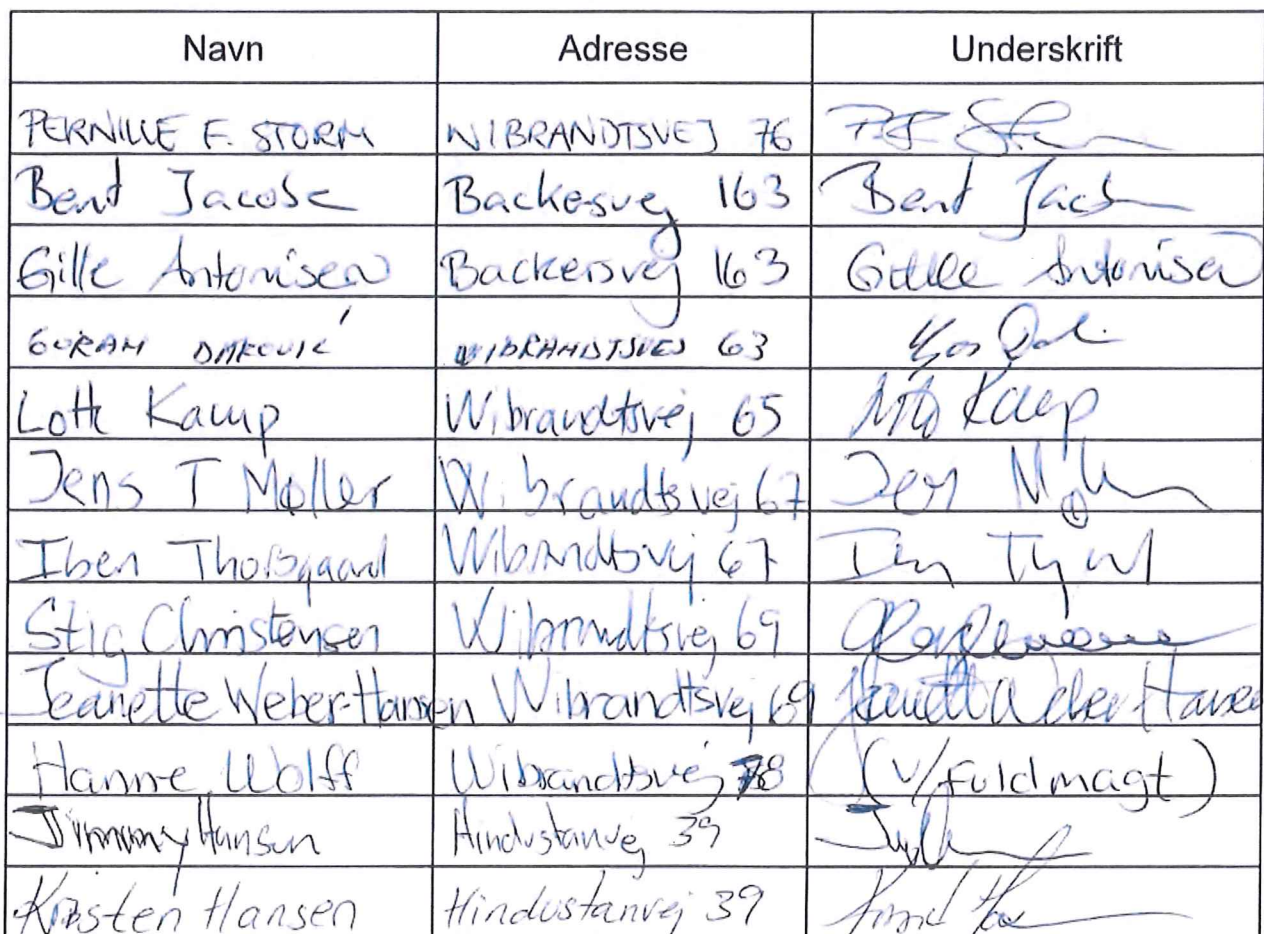 Navn Adresse Underskrift
PERNILLE F. STORM WIBRANDTSVEJ 76
Bent Jacobse Backersvej 163 Bent
Gille Antonisen Backersvej 163 Gille Antonisen
GORAN WIBRANDTSVEJ 63
Lotte Kamp Wibrandtsvej 65 Kamp
Jens T Møller Wibrandtsvej 67 Jens
Iben Thorsgaard Wibrandtsvej 67
Stig Christensen Wibrandtsvej 69
Jeanette Weber-Hansen Wibrandtsvej 69 Jeanette Weber-Hansen
Hanne Wolff Wibrandtsvej 78 (v/fuldmagt)
Jimmy Hansen Hindustanvej 39
Kirsten Hansen Hindustanvej 39